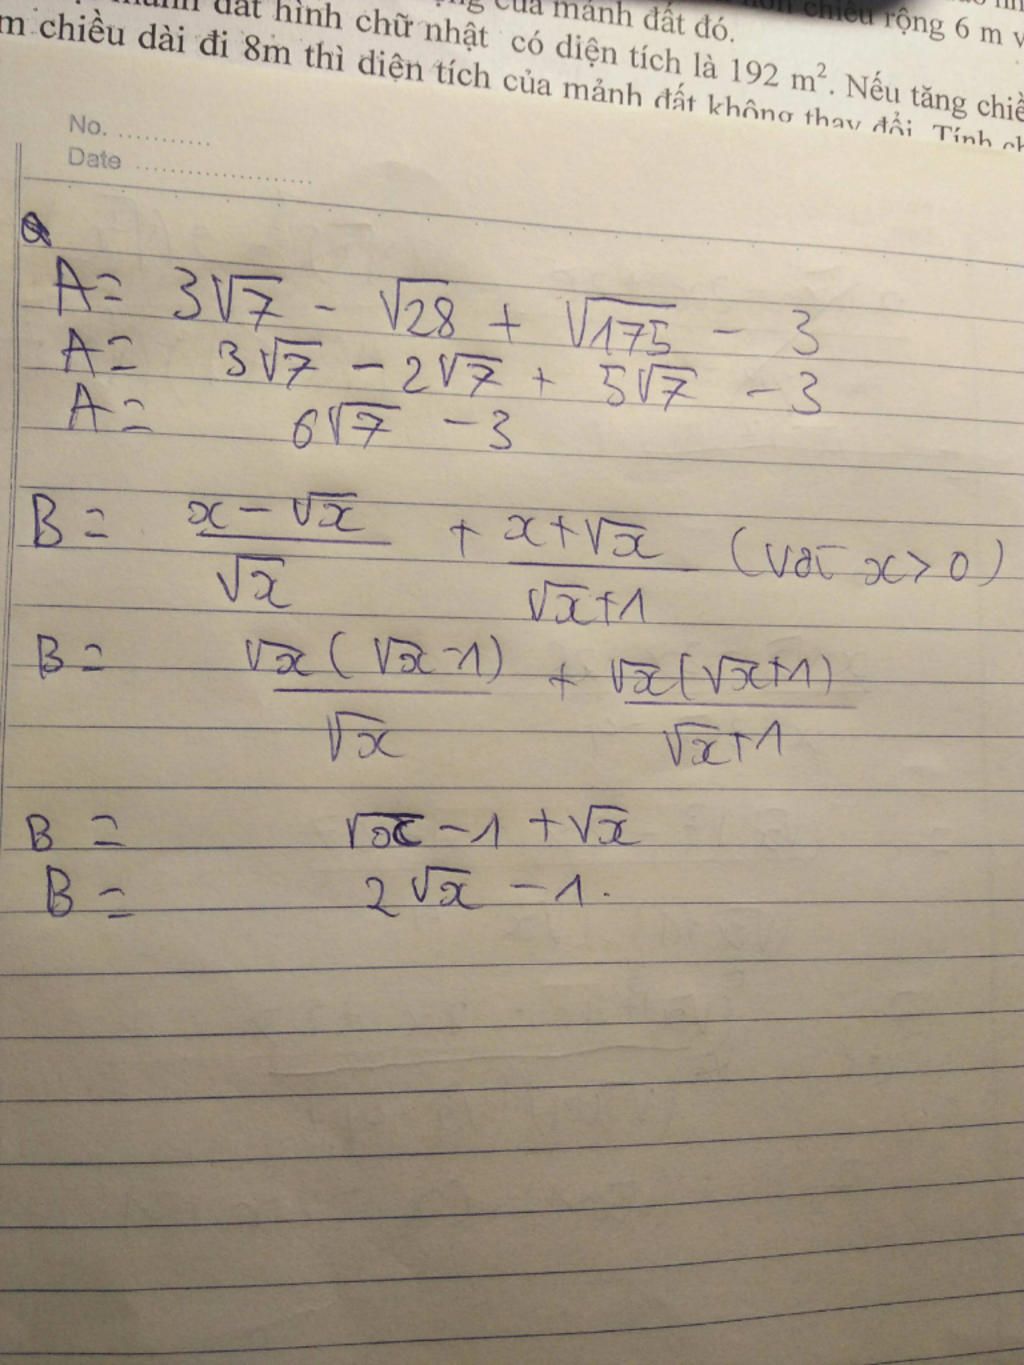 của mảnh đất đó.
chiều rộng 6 m v
đất hình chữ nhật có diện tích là 192 m². Nếu tăng chiề
m chiều dài đi 8m thì diện tích của mảnh đất không thay đổi. Tính ch
No. ............
Date ......................
A= 3√7 - √28 + √175 - 3
A= 3√7 - 2√7 + 5√7 - 3
A= 6√7 - 3
B = (x-√x)/√x + (x+√x)/(√x+1) (với x>0)
B = √x(√x-1)/√x + √x(√x+1)/(√x+1)
B = √x - 1 + √x
B = 2√x - 1.